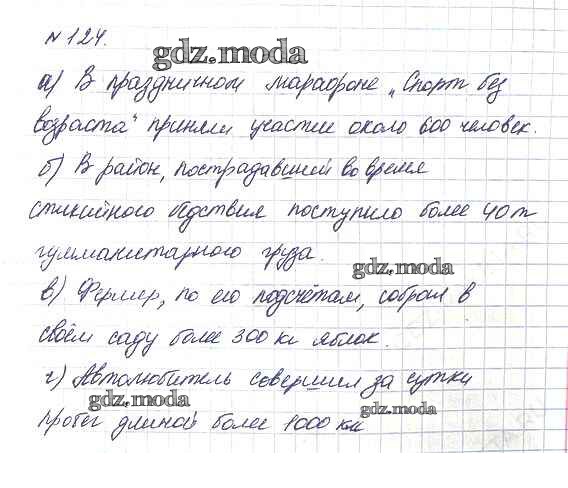 № 124.
gdz.moda
а) В праздничном марафоне „Спорт без
возраста" приняли участие около 600 человек.
б) В район, пострадавший во время
стихийного бедствия поступило более 40 т
гумманитарного груза.
gdz.moda
в) Фермер, по его подсчётам, собрал в
своём саду более 300 кг яблок.
г) Автолюбитель совершил за сутки
gdz.moda
gdz.moda
пробег длиной более 1000 км